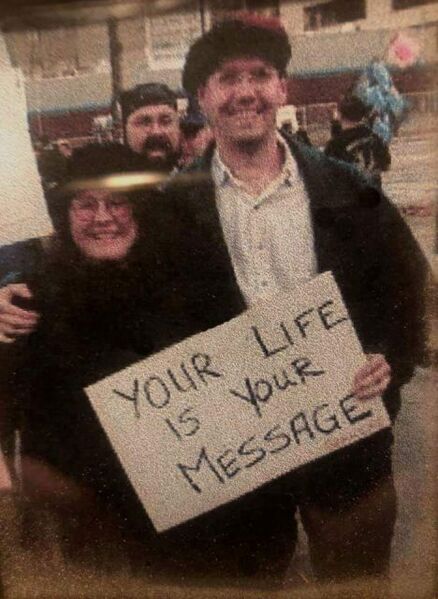 YOUR LIFE
IS YOUR
MESSAGE